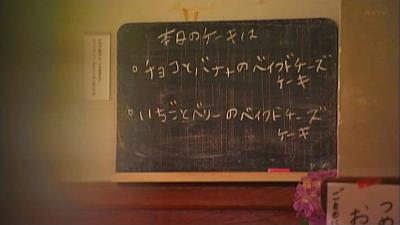 本日のケーキは
○チョコとバナナのベイクドチーズ
ケーキ
○いちごとベリーのベイクドチーズ
ケーキ
つめ
お